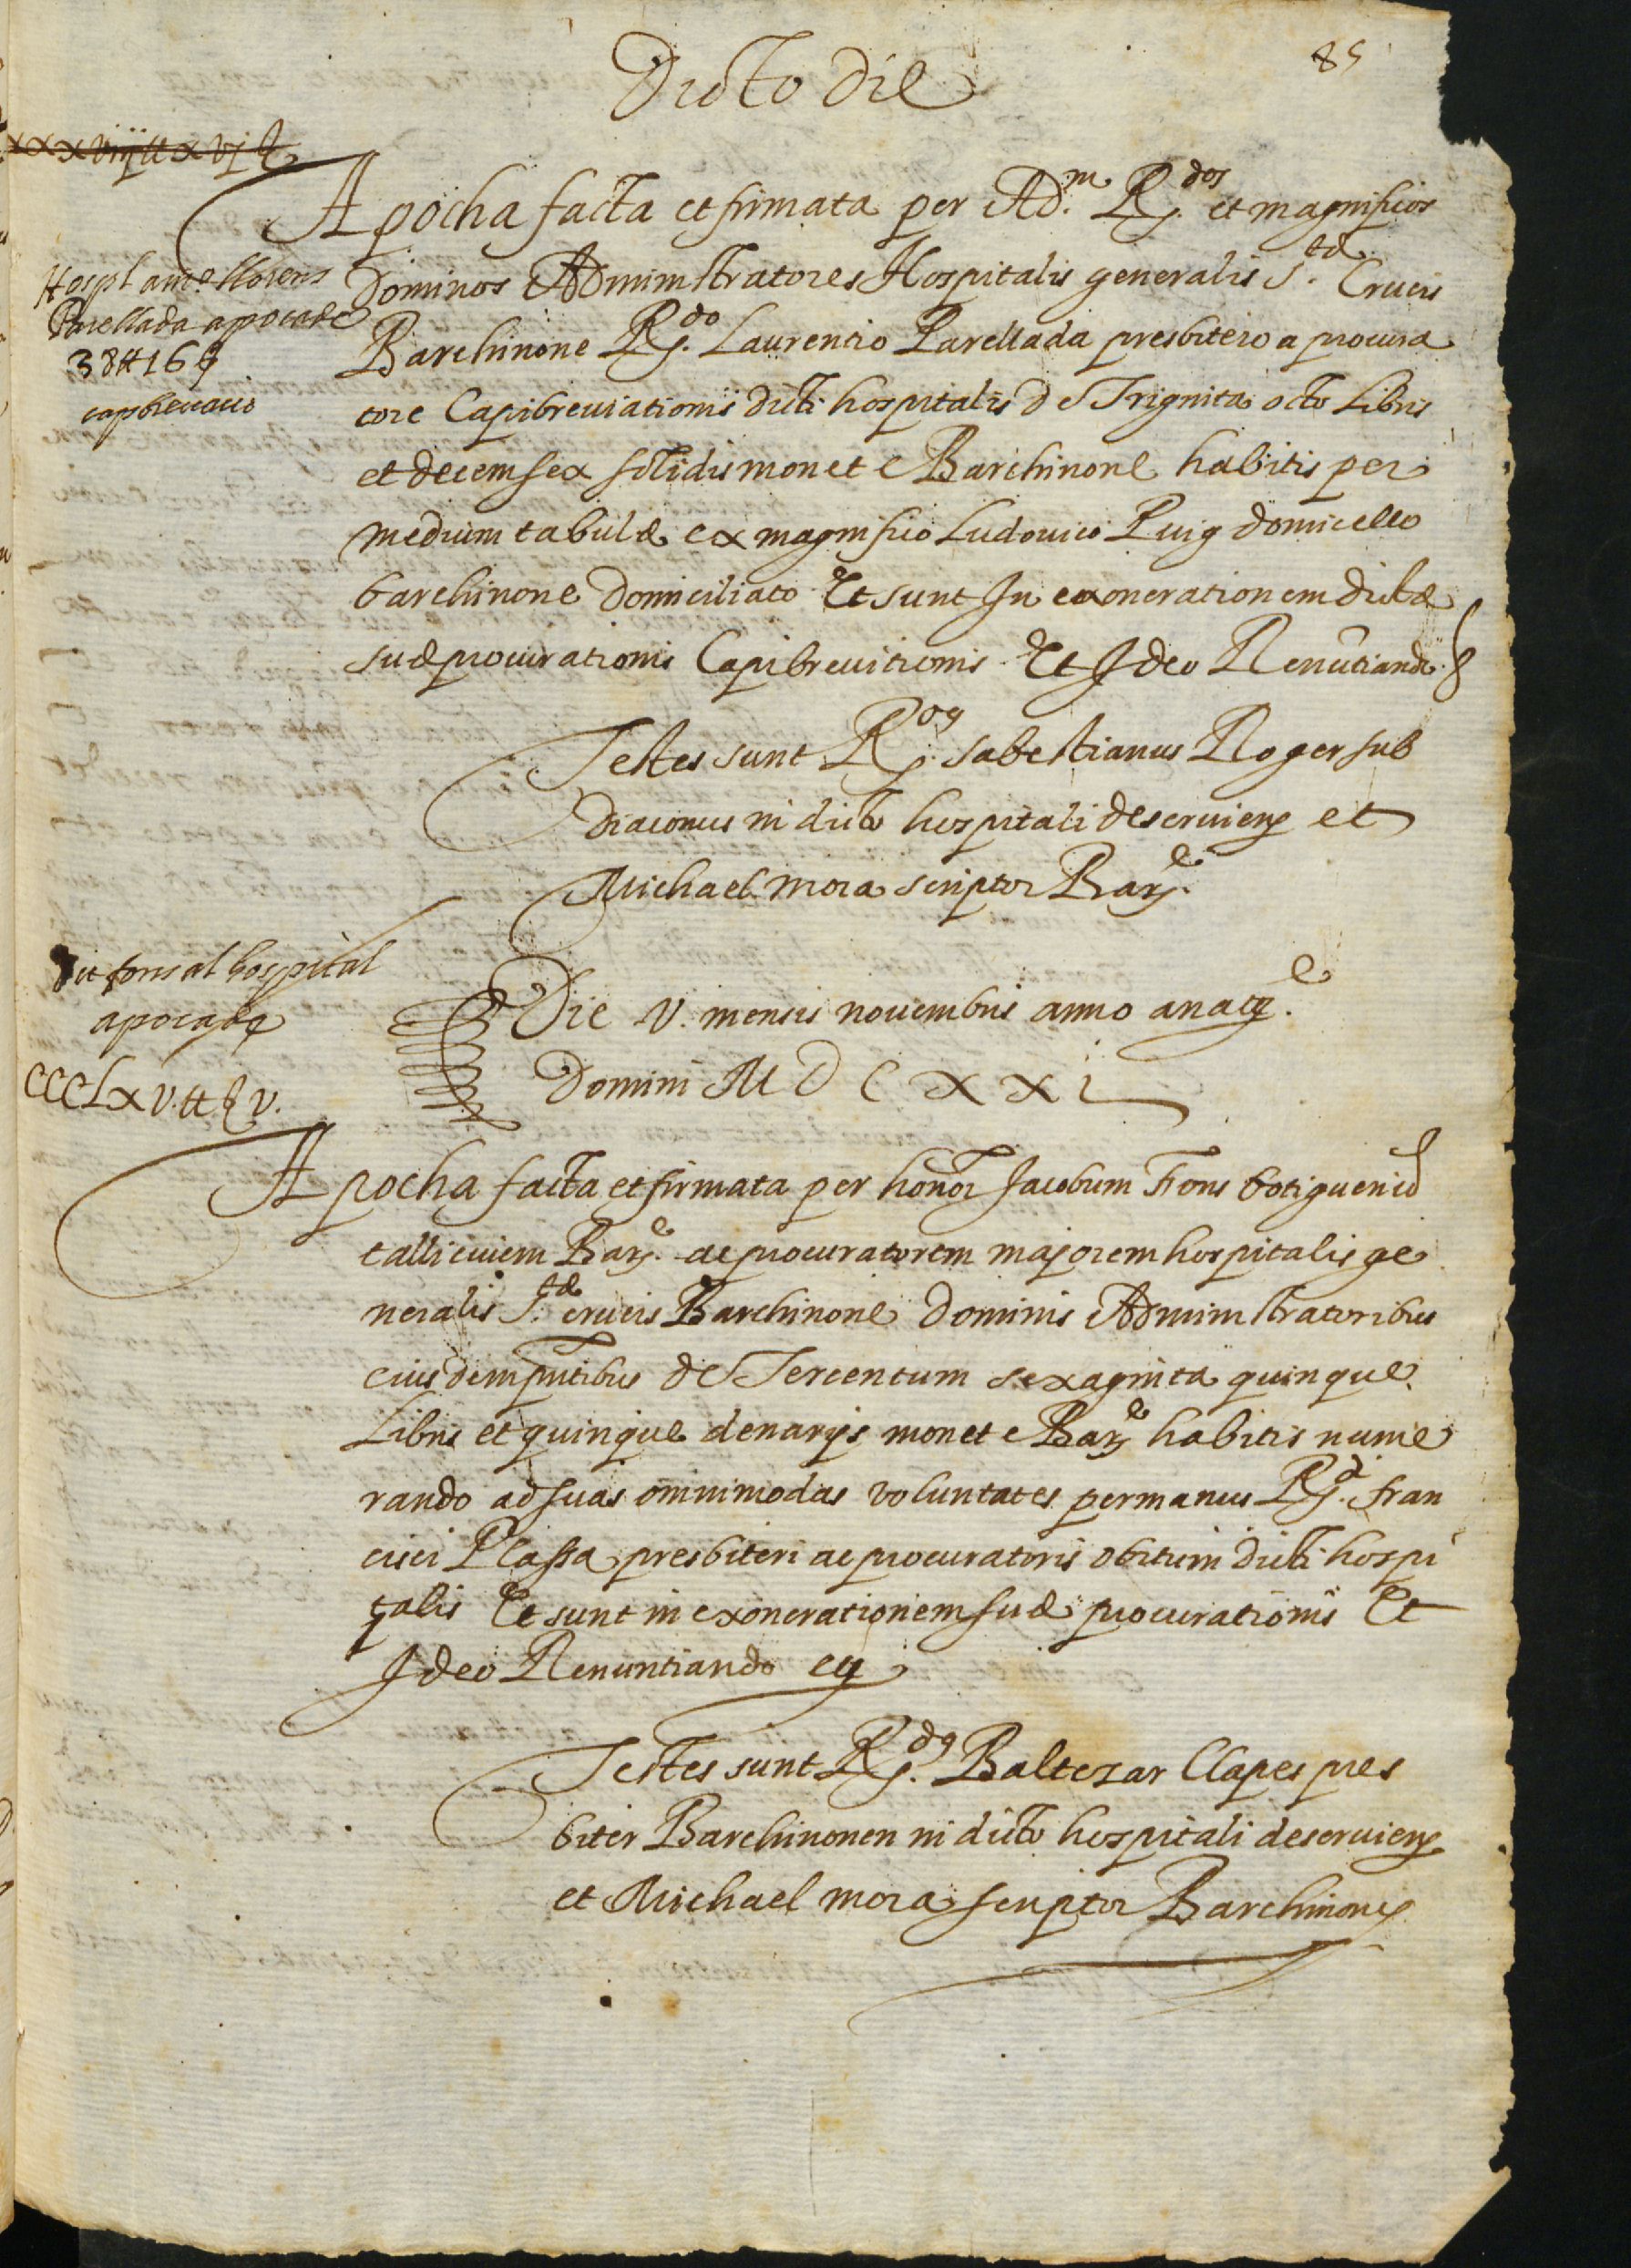 85
Dicto Die
xxxviij ll xvj ß
Apocha facta et firmata per Ad.m R.dos et magnificos
Dominos Administratores Hospitalis generalis S.tæ Crucis
Barchinone R.do Laurentio Parellada presbitero a procura
tore Capibreviationis dicti hospitalis de Trignita octo Libris
et decem sex solidis monete Barchinone habitis per
medium tabulæ ex magnifico Ludovico Puig domicello
barchinone Domiciliato Et sunt In exonerationem dictæ
suæ procurationis Capibrevitionis Et Ideo Renuntiando &
Hospl am.e llorens
Parellada apoca de
38 ll 16 ß
capbrevacio
Testes sunt R.ds sabestianus Roger sub
diaconus in dicto hospitali deserviens et
Michael mora scriptor Bar.e
Die V. mensis novembris anno a nate.
Domini M D C X X i
fons al hospital
apoca de
CCCLxv. ll ß v.
Apocha facta et firmata per honor Jacobum Fons botiguerium
tallicivem Bar.e ac procuratorem majorem hospitalis ge
neralis S.tæ crucis Barchinone Dominis Administratoribus
eiusdem pntibus de Tercentum sexaginta quinque
Libris et quinque denarijs monete Bar.e habitis nume
rando ad suas omnimodas voluntates per manus R.di fran
cisci Plassa presbiteri ac procuratoris obituum dicti hospi
talis Et sunt in exonerationem suæ procurationis Et
Ideo Renuntiando ec
Testes sunt R.ds Baltezar Clapes pres
biter Barchinonen in dicto hospitali deserviens
et Michael mora scriptor Barchinone